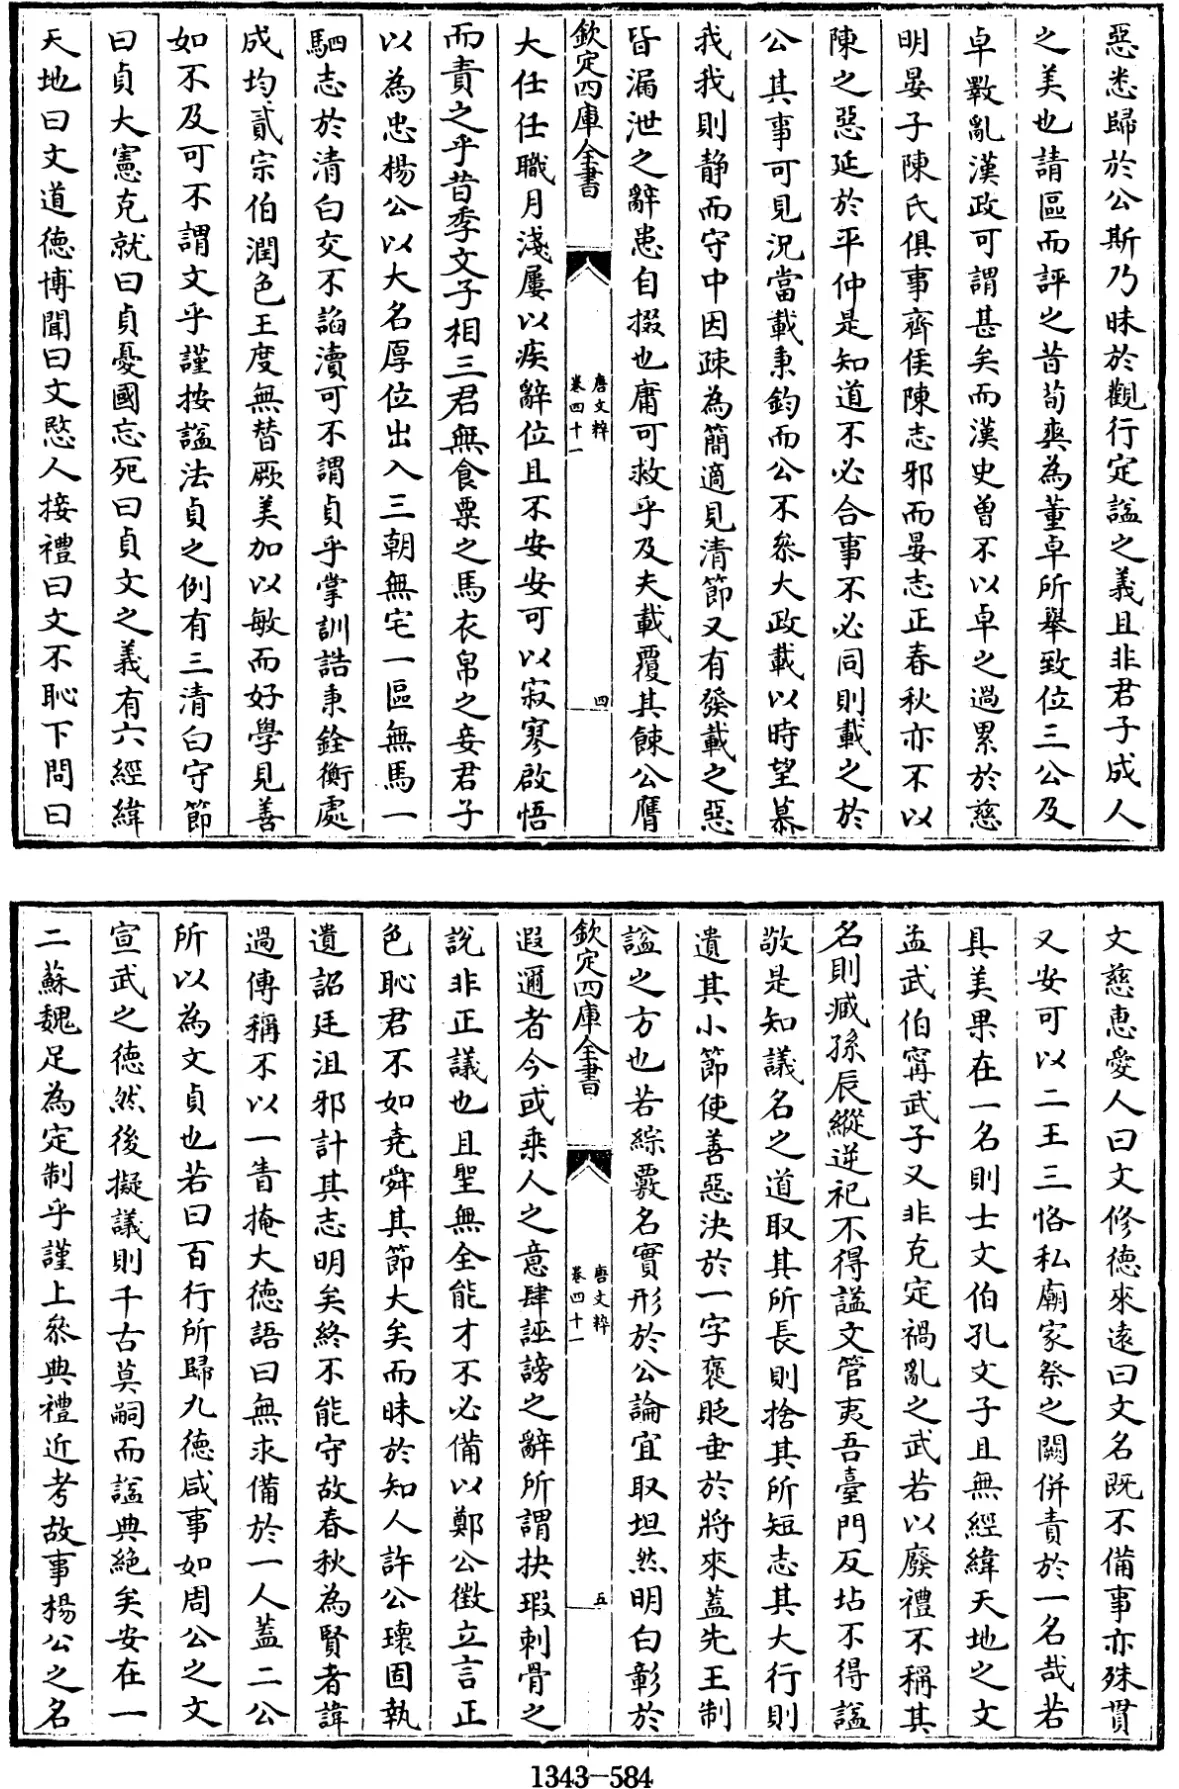 惡悉歸於公斯乃昧於觀行定諡之義且非君子成人
之美也請區而評之昔荀爽為董卓所舉致位三公及
卓斁亂漢政可謂甚矣而漢史曾不以卓之過累於慈
明晏子陳氏俱事齊侯陳志邪而晏志正春秋亦不以
陳之惡延於平仲是知道不必合事不必同則載之於
公其事可見況當載秉鈞而公不叅大政載以時望慕
我我則静而守中因疎為簡適見清節又有發載之惡
皆漏泄之辭患自掇也庸可救乎及夫載覆其餗公膺
欽定四庫全書
唐文粹
卷四十一
四
大任任職月淺屢以疾辭位且不安安可以寂寥啟悟
而責之乎昔季文子相三君無食粟之馬衣帛之妾君子
以為忠楊公以大名厚位出入三朝無宅一區無馬一
駟志於清白交不諂瀆可不謂貞乎掌訓誥秉銓衡處
成均貳宗伯潤色王度無替厥美加以敏而好學見善
如不及可不謂文乎謹按諡法貞之例有三清白守節
曰貞大憲克就曰貞憂國忘死曰貞文之義有六經緯
天地曰文道德博聞曰文愍人接禮曰文不恥下問曰
文慈惠愛人曰文修德來遠曰文名既不備事亦殊貫
又安可以二王三恪私廟家祭之闕併責於一名哉若
具美果在一名則士文伯孔文子且無經緯天地之文
孟武伯甯武子又非克定禍亂之武若以廢禮不稱其
名則臧孫辰縱逆祀不得諡文管夷吾臺門反坫不得諡
敬是知議名之道取其所長則捨其所短志其大行則
遺其小節使善惡決於一字褒貶垂於將來蓋先王制
諡之方也若綜覈名實形於公論宜取坦然明白彰於
欽定四庫全書
唐文粹
卷四十一
五
遐邇者今或乗人之意肆誣謗之辭所謂抉瑕刺骨之
說非正議也且聖無全能才不必備以鄭公徵立言正
色恥君不如堯舜其節大矣而昧於知人許公瓌固執
遺詔廷沮邪計其志明矣終不能守故春秋為賢者諱
過傳稱不以一眚掩大德語曰無求備於一人蓋二公
所以為文貞也若曰百行所歸九德咸事如周公之文
宣武之德然後擬議則千古莫嗣而諡典絕矣安在一
二蘇魏足為定制乎謹上叅典禮近考故事楊公之名
1343—584